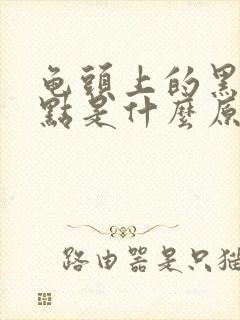 龟頭上的黑
點是什麼原
路由器是只猫